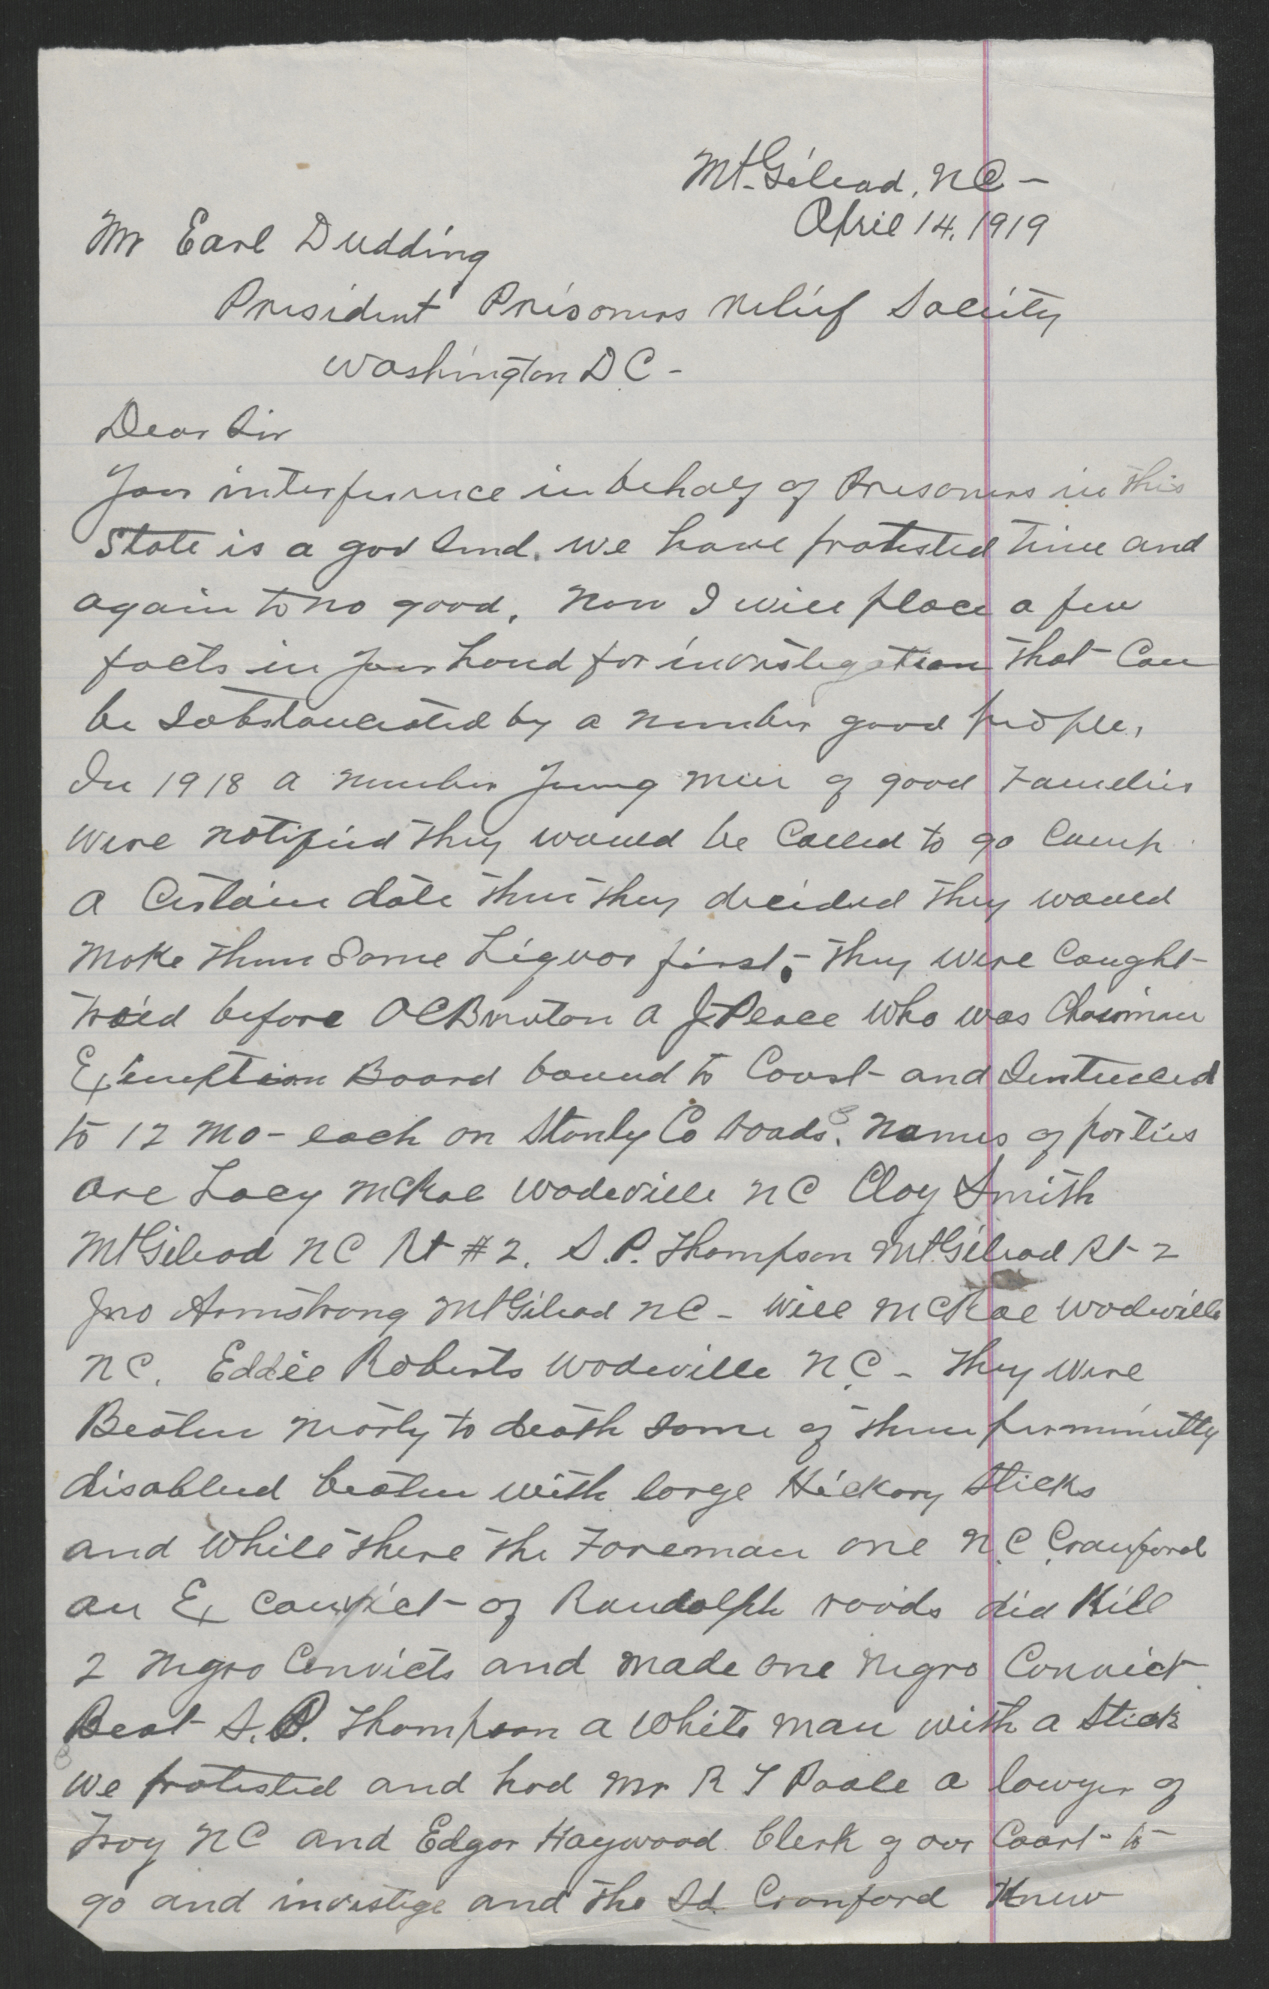 Mt. Gilead, NC -
April 14, 1919
Mr Earl Dudding
President Prisoners relief Sociity
Washington D C -
Dear Sir
Your interferrence in behalf of Prisoners in this
State is a god send. we have protested time and
again to no good. now I will place a few
facts in your hand for investigation that Can
be Substanciated by a number good people.
In 1918 a number young men of good Families
were notified they would be Called to go Camp
a Certain date then they decided they would
make them Some Liquor first, - they were Caught -
tried before O C Bruton a J Peace who was Chairman
Exemption Board bound to Court - and Sentenced
to 12 Mo - each on Stanly Co roads. names of parties
are Lacy McRae Wadeville NC Clay Smith
Mt Gilead NC Rt # 2. S. P. Thompson Mt. Gilead Rt - 2
Jno Armstrong Mt Gilead NC - Will McRae Wadeville
NC. Eddie Roberts Wadeville N.C - They were
Beaten nearly to death some of them perminitly
disabled beaten with large Hickory Sticks
and while there the Foreman one N.C Cranford
an Ex convict - of Randolph roads did Kill
2 negro Convicts and made one negro Convict
Beat S. P. Thompson a white man with a stick
we protested and had Mr R T Poole a lawyer of
Troy NC and Edgar Haywood Clerk of our Court - to
go and investige and the Sd Cranford Knew